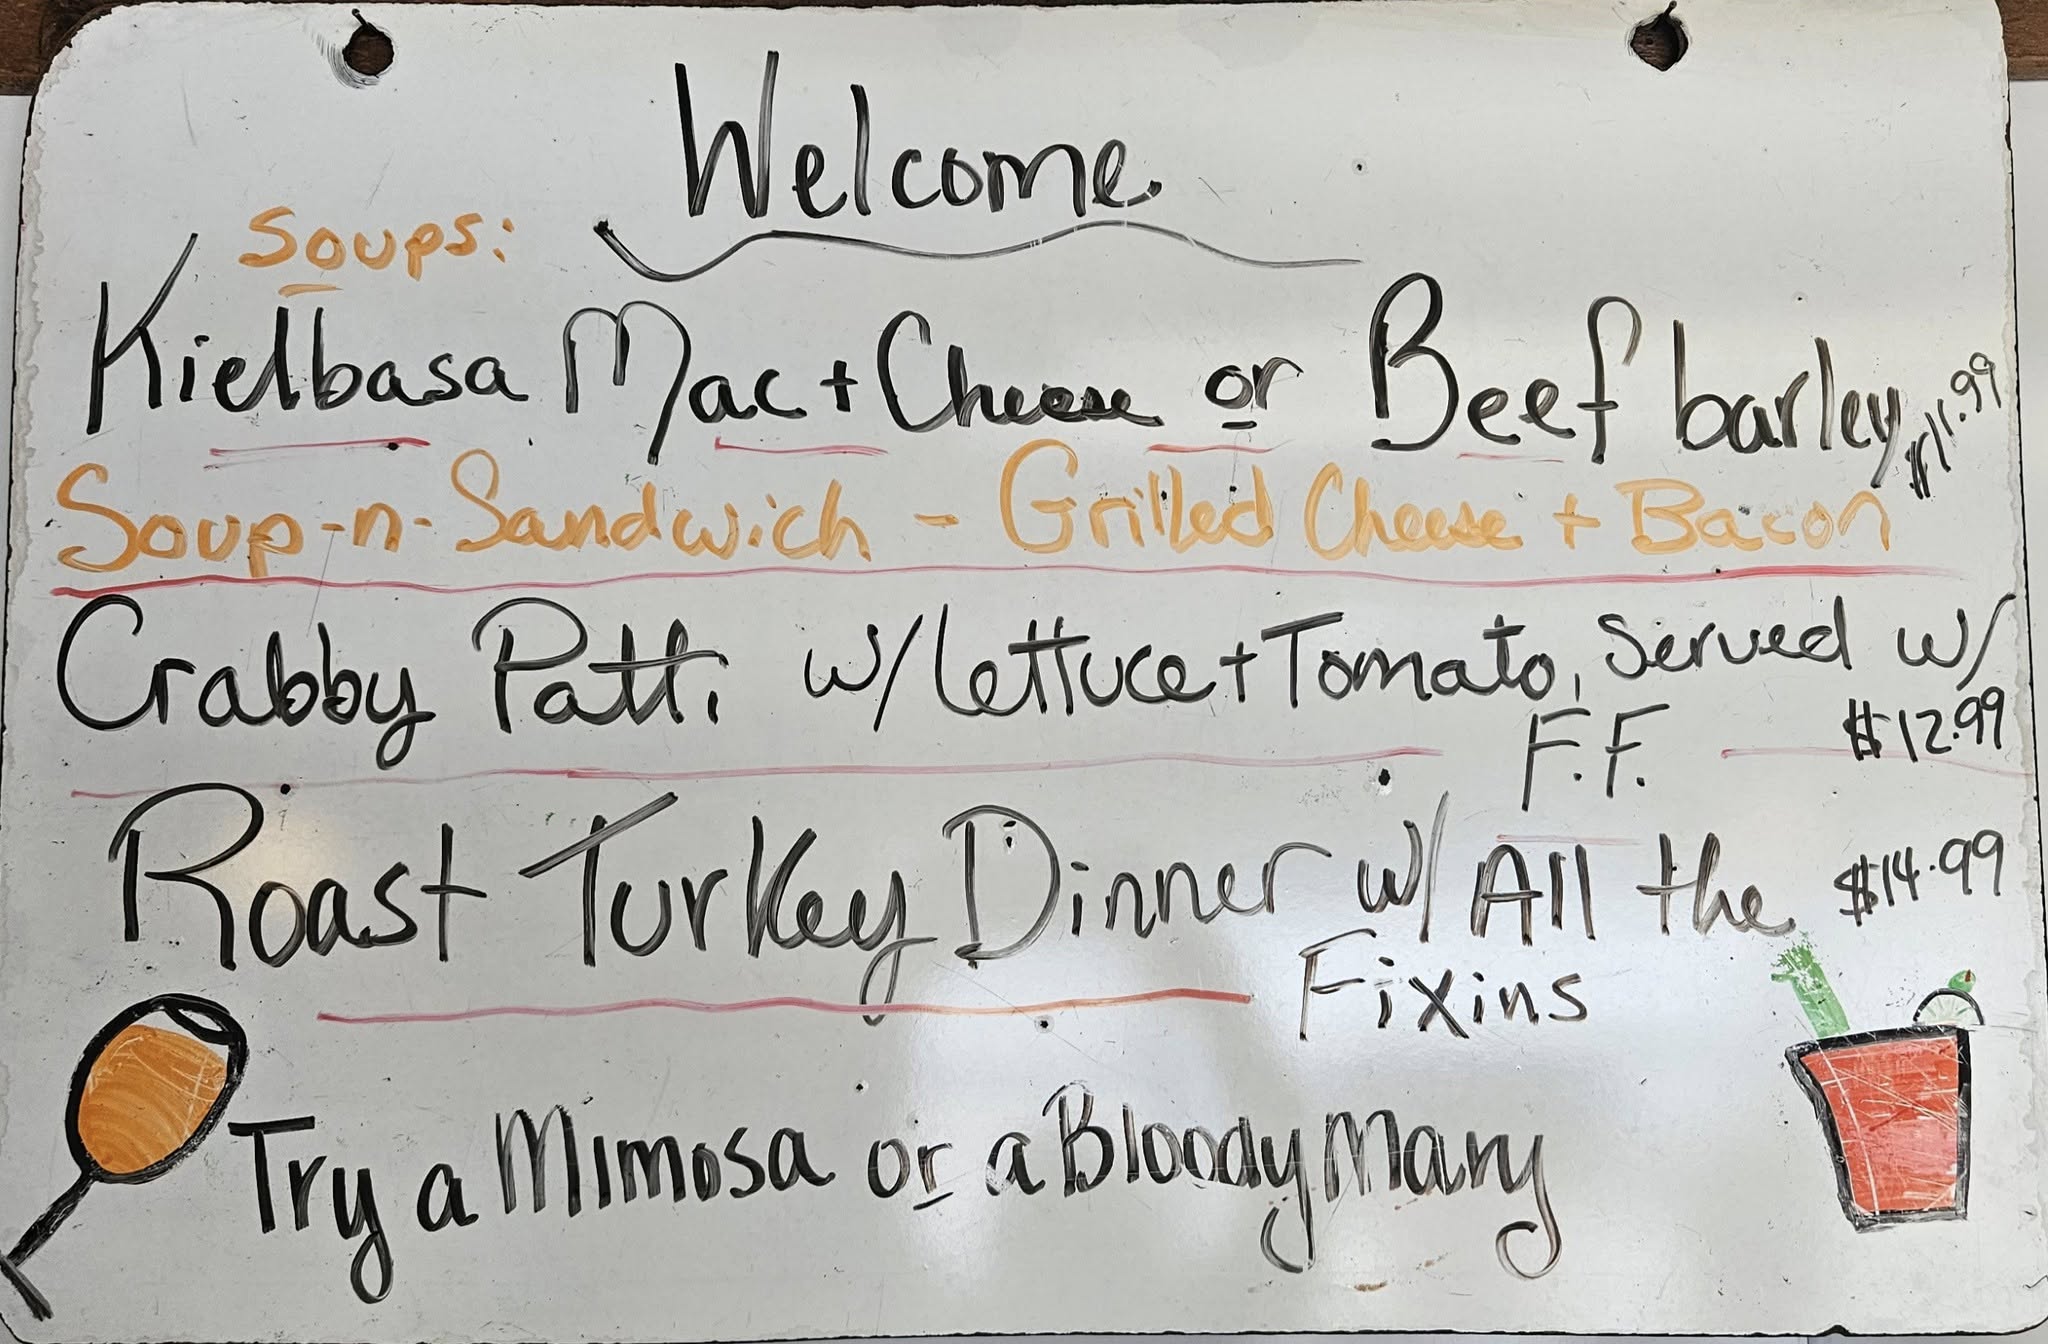 Welcome
Soups:
Kielbasa Mac + Cheese or Beef barley $11.99
Soup-n-Sandwich - Grilled Cheese + Bacon
Crabby Patti w/ Lettuce + Tomato, Served w/
F.F. $12.99
Roast Turkey Dinner w/ All the $14.99
Fixins
Try a Mimosa or a Bloody Mary